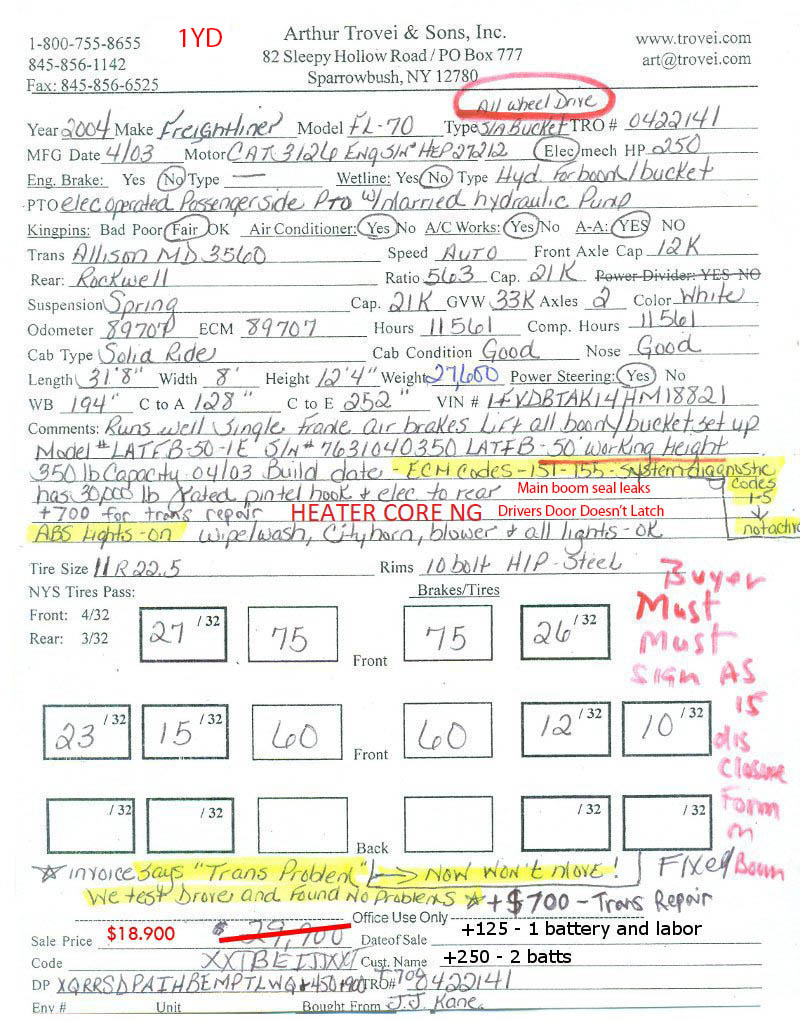 1-800-755-8655 1YD Arthur Trovei & Sons, Inc. www.trovei.com
845-856-1142 82 Sleepy Hollow Road / PO Box 777 art@trovei.com
Fax: 845-856-6525 Sparrowbush, NY 12780
All Wheel Drive
Year 2004 Make Freightliner Model FL-70 Type S/A Bucket TRO # 0422141
MFG Date 4/03 Motor CAT 3126 Eng S/N# HEP27212 Elec mech HP 250
Eng. Brake: Yes No Type — Wetline: Yes No Type Hyd For boom/bucket
PTO elec operated Passenger side PTO w/ married hydraulic Pump
Kingpins: Bad Poor Fair OK Air Conditioner: Yes No A/C Works: Yes No A-A: YES NO
Trans Allison MD 3560 Speed Auto Front Axle Cap 12K
Rear: Rockwell Ratio 563 Cap. 21K Power Divider: YES NO
Suspension Spring Cap. 21K GVW 33K Axles 2 Color White
Odometer 89707 ECM 89707 Hours 11561 Comp. Hours 11561
Cab Type Solid Ride Cab Condition Good Nose Good
Length 31'8" Width 8' Height 12'4" Weight 27,600 Power Steering: Yes No
WB 194" C to A 128" C to E 252" VIN # 1FVDBTAK14HM18821
Comments: Runs well Single frame air brakes Lift all boom/bucket set up
Model # LATFB-50-1E S/N# 7631040350 LATFB-50' Working Height
350 lb Capacity 04/03 Build date - ECM Codes - 151-155 - System diagnostic
has 30,000 lb rated pintel hook & elec to rear Main boom seal leaks codes 1-5
+700 for trans repair HEATER CORE NG Drivers Door Doesn't Latch
ABS Lights - on Wipe/wash, City horn, blower & all lights - OK
Tire Size 11R22.5 Rims 10 bolt H/P - Steel
NYS Tires Pass: Brakes/Tires
Front: 4/32
Rear: 3/32
27 /32 75 Front 75 26 /32
23 /32 15 /32 60 Front 60 12 /32 10 /32
/32 /32 Back /32 /32
Buyer
Must
Must
Sign AS
IS
dis
Closure
Form
on
Boom
☆ invoice says "Trans Problem" → Now won't move! Fixed
We test Drove and Found No Problems ☆ +$700 - Trans Repair
Office Use Only
Sale Price $18.900 $29,900 Date of Sale +125 - 1 battery and labor
Code XXTBEITJXX Cust. Name +250 - 2 batts
DP XQRRSDPATHBEMPTLWQ +450+900 +700 TRO# 0422141
Env # Unit Bought From J.J. Kane.